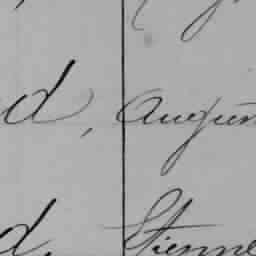 d, Augus
d. Etienne